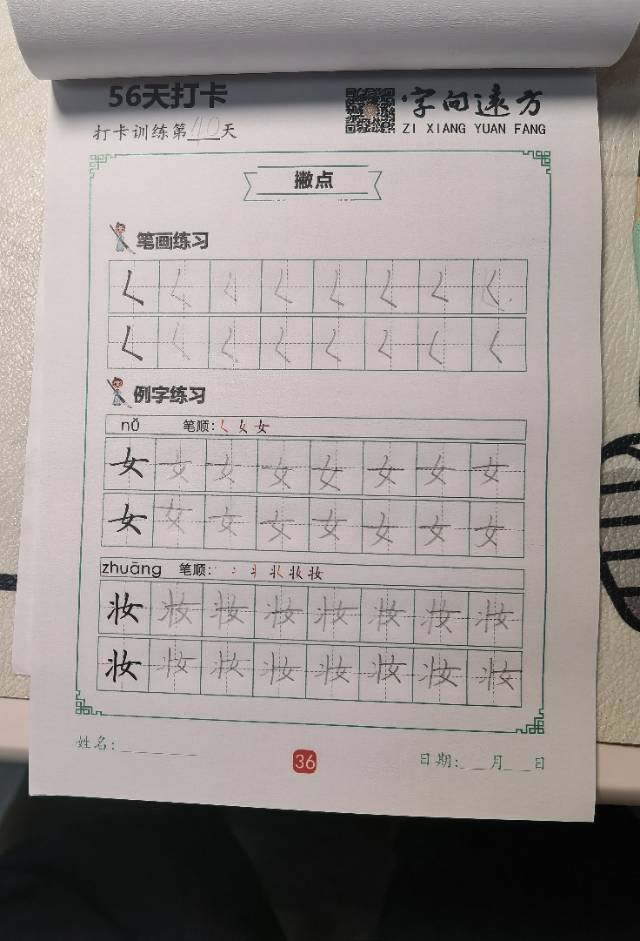 56天打卡
字向遠方
打卡训练第40天
ZI XIANG YUAN FANG
撇点
笔画练习
𡿨 𡿨 𡿨 𡿨 𡿨 𡿨 𡿨 𡿨
𡿨 𡿨 𡿨 𡿨 𡿨 𡿨 𡿨 𡿨
例字练习
nǚ 笔顺: 𡿨 女 女
女 女 女 女 女 女 女 女
女 女 女 女 女 女 女 女
zhuāng 笔顺: 丬 妆 妆
妆 妆 妆 妆 妆 妆 妆 妆
妆 妆 妆 妆 妆 妆 妆 妆
姓名:
36
日期: 月 日